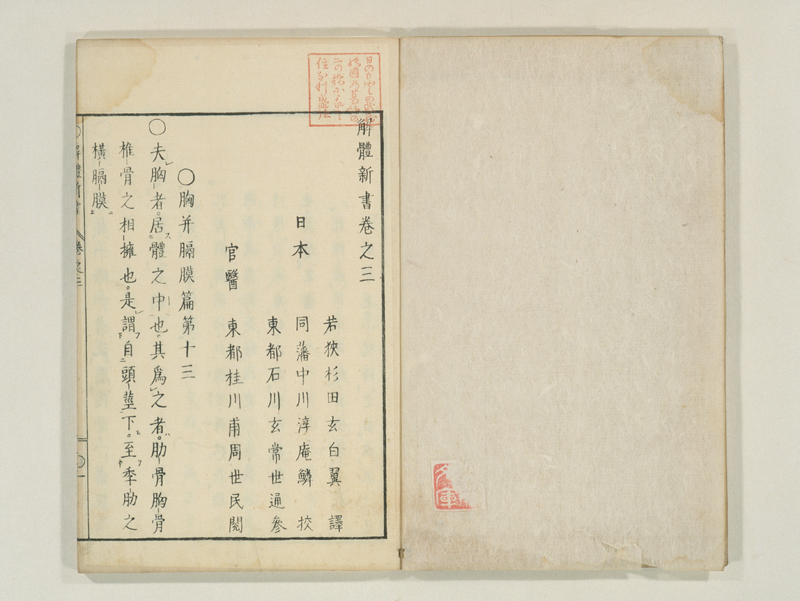 解體新書卷之三
若狹杉田玄白翼 譯
日本
同藩中川淳庵鱗 挍
東都石川玄常世通參
官醫
東都桂川甫周世民閱
〇胸并膈膜篇第十三
〇夫胸者。居體之中也。其爲之者。肋骨胸骨
椎骨之相擁也。是謂自頭蹵下。至季肋之
橫膈膜